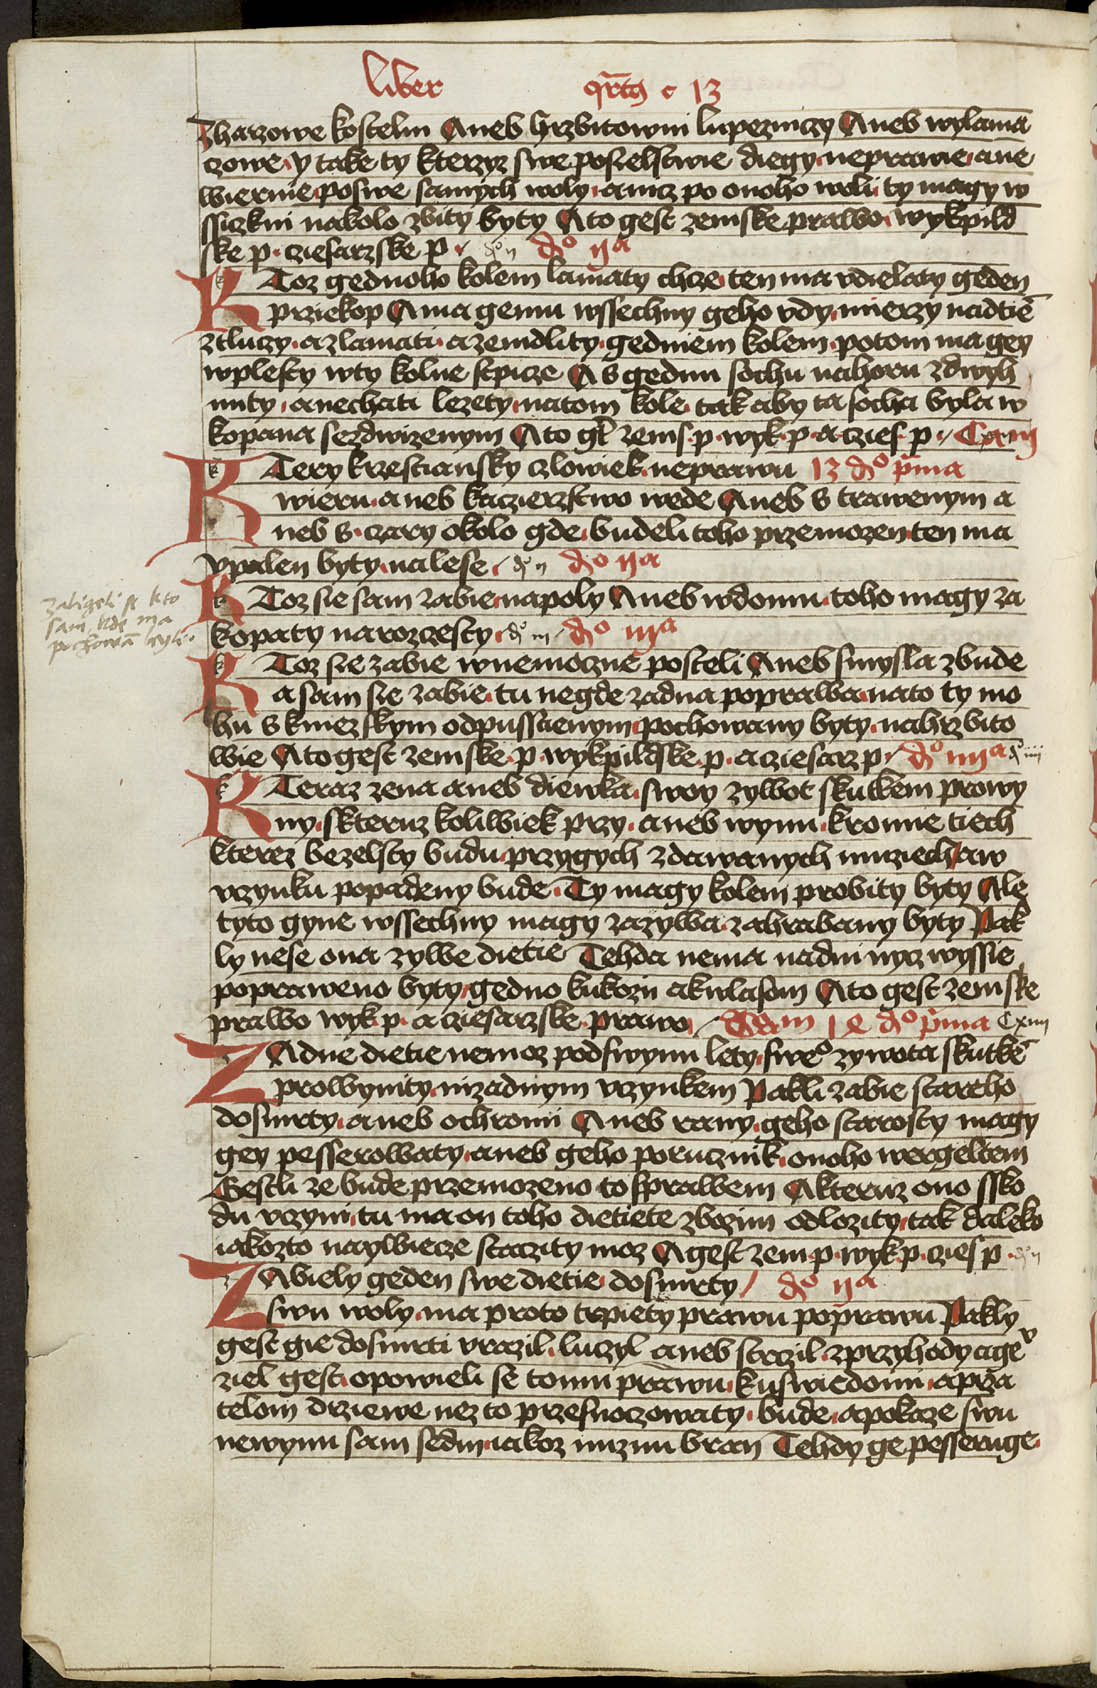 liber qrtg c 13
Zharzowe kostelni Aneb hrzbitowni lupezniczy Aneb wylama
czowe y take ty kterzyz swe poselstwie diegy neprawie ane
wiernie poswe samych woly a nicz po onoho woli ty magy w
ssiczkni nakolo zbity byty Ato gest zemske prawo wykpild
ske p. cziesarzske p. d° ii d° ija
KToz gednoho kolem lamaty chcze ten ma vdielaty geden
prziekop A ma gemu wssechny geho vdy mierzy nadtie
ztluczy a zlamati a zemdlity gedniem kolem potom ma gey
wplesty wty kolne sspicze A s gednu sochu nahoru zdwyh
nuty a nechati lezety natom kole tak aby ta socha byla w
kopana sezdwizenym Ato gt zems. p. wyk. p. a czies. p. Cxiij
KTery krzestiansky czlowiek neprawu 13 d° pma
wieru aneb kaczierzstwo wede Aneb s trawenym a
neb s czary okolo gde budeli toho przemozen ten ma
vpalen byty nalese d° ii d° ija
KToz sie sam zabie napoly Aneb wdomu toho magy za
kopaty narozcesty d° iii d° iija
zabigeli se kto
sam, kde ma
pochowan byti
KToz sie zabie wnemoczne posteli Aneb smysla zbude
a sam sie zabie tu negde zadna poprawa nato ty mo
hu s knezskym odpusstienym pochowany byty nahrzbito
wie Ato gest zemske p. wykpildske p. a ciesarz p. d° iiija d° iiii
KTeraz zena aneb diewka swoy zywot skutkem prowy
ny skteruz koliwiek przy aneb wynu kromie tiech
kterez bezelsty budu przygych zdawanych muziech a w
vczynku popadeny bude Ty magy kolem probity byty Ale
tyto gyne wssechny magy zazywa zahrabany byty Pak
ly nese ona zywe dietie Tehda nema nadni nycz wyssie
popraweno byty gedno kukozu akulasom Ato gest zemske
prawo wyk. p. a cziesarzske prawo 14 d° pma Cxiiii
ZAdne dietie nemoz podswynu lety swe° zywota skutke
prowynity nizadnym vczynkem Pakli zabie stareho
dosmrty aneb ochromi Aneb rany geho starosty magy
gey pesserowaty aneb geho porucznik onoho wergeltem
Gestli ze bude przemozeno to sprawem A kteruz ono ssko
du vczyni tu ma on toho dietiete zbozim odlozity tak daleko
iakozto naywiecze staczity moz A gest zem. p. wyk. p. czies p. d° ii
ZAbiely geden swe dietie dosmrty d° ija
swu woly ma proto trpiety prawu poprawu Pakly
gest gie dosmrti vrazil luczyl aneb strczil zprzyhody a ge v
ziel gest opowieli se tomu prawu kuswiedomi a prza
telom drziewe nez to przesnoczowaty bude a pokaze swu
newynu sam sedm iakoz muzmi bran Tehdy ge pesseruge